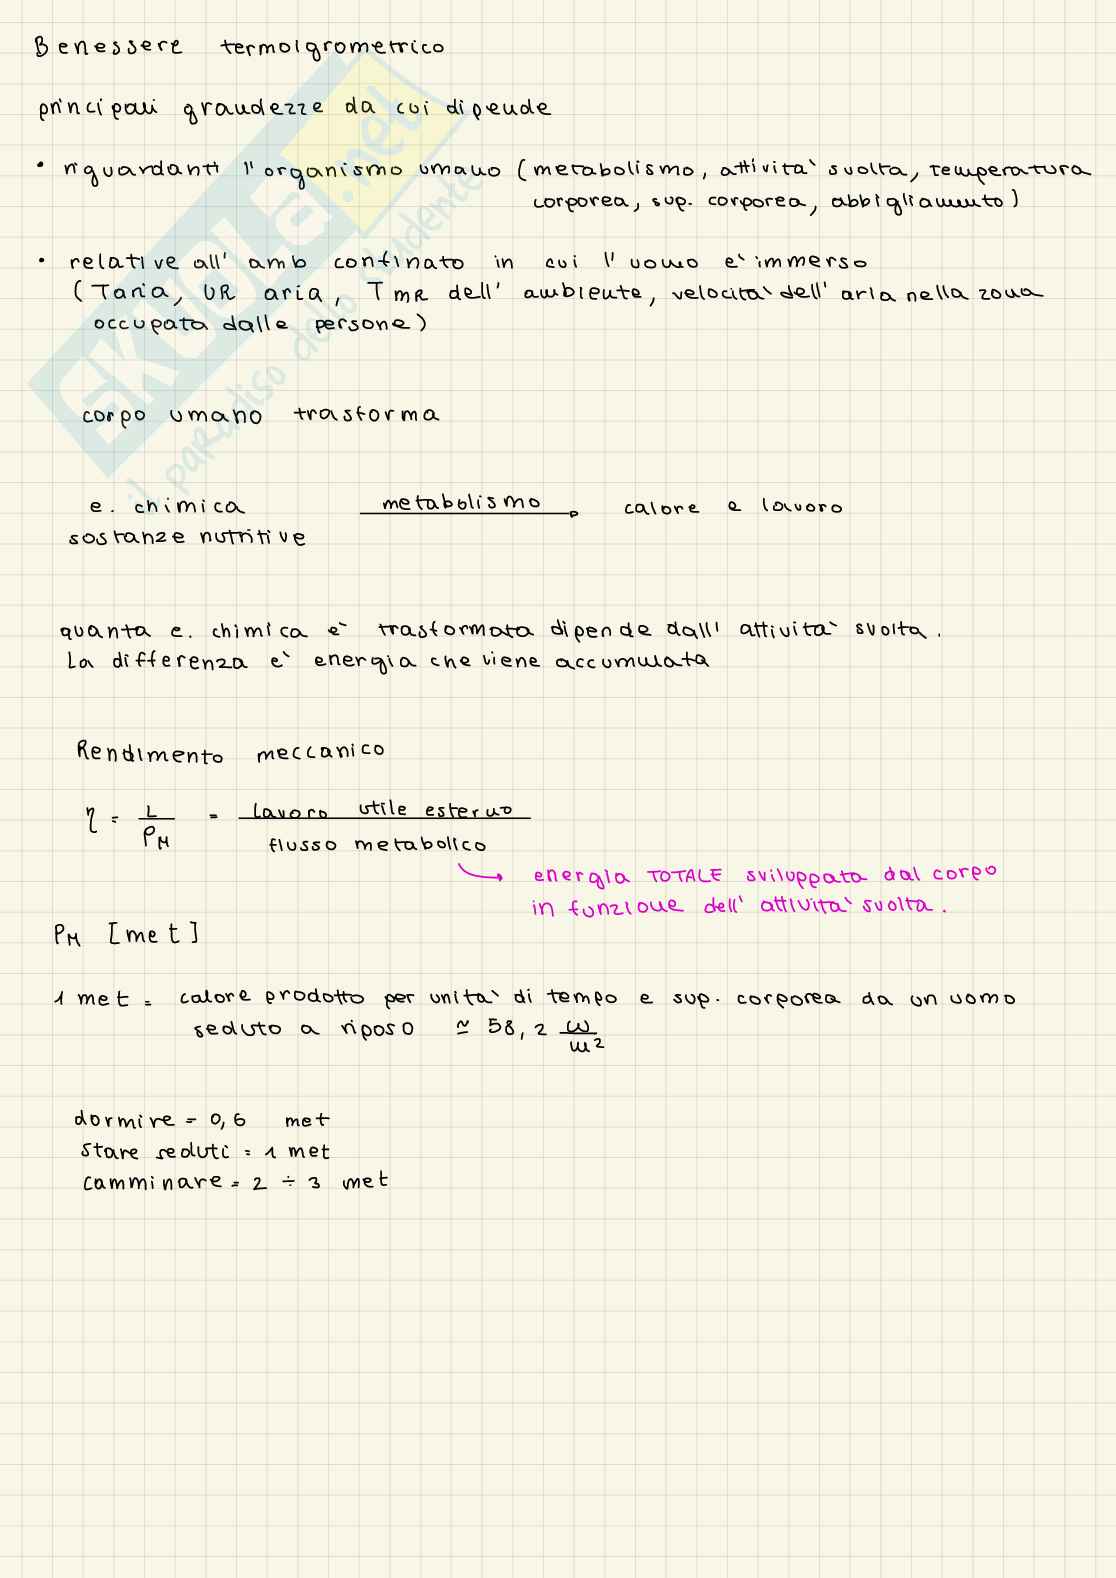 Benessere termoigrometrico
principali grandezze da cui dipende
• riguardanti l'organismo umano (metabolismo, attività svolta, temperatura
corporea, sup. corporea, abbigliamento)
• relative all'amb confinato in cui l'uomo è immerso
(Taria, UR aria, TMR dell'ambiente, velocità dell'aria nella zona
occupata dalle persone)
corpo umano trasforma
e. chimica metabolismo calore e lavoro
sostanze nutritive
quanta e. chimica è trasformata dipende dall'attività svolta.
La differenza è energia che viene accumulata
Rendimento meccanico
η = L / PM = lavoro utile esterno / flusso metabolico
energia TOTALE sviluppata dal corpo
in funzione dell'attività svolta.
PM [met]
1 met = calore prodotto per unità di tempo e sup. corporea da un uomo
seduto a riposo ≃ 58,2 W/m²
dormire = 0,6 met
stare seduti = 1 met
camminare = 2 ÷ 3 met
SKUOLA.net
il paradiso dello studente